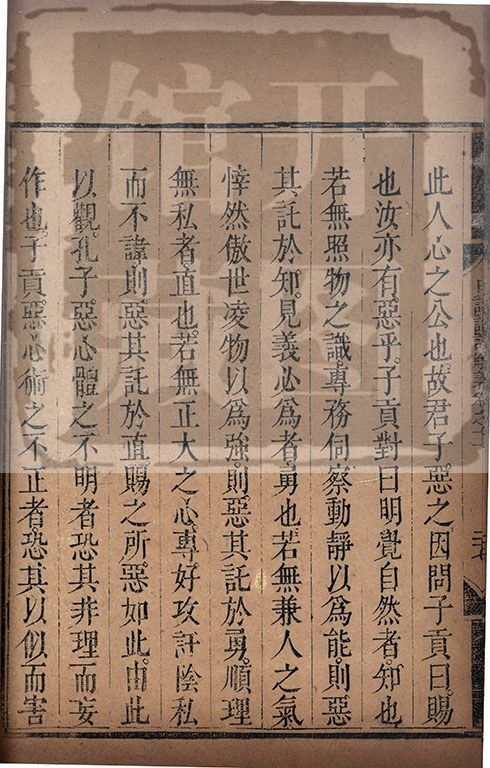 此人心之公也故君子惡之因問子貢曰賜
也汝亦有惡乎子貢對曰明覺自然者知也
若無照物之識專務伺察動靜以爲能則惡
其託於知見義必爲者勇也若無兼人之氣
悻然傲世凌物以爲強則惡其託於勇順理
無私者直也若無正大之心專好攻訐陰私
而不諱則惡其託於直賜之所惡如此由此
以觀孔子惡心體之不明者恐其非理而妄
作也子貢惡心術之不正者恐其以似而害